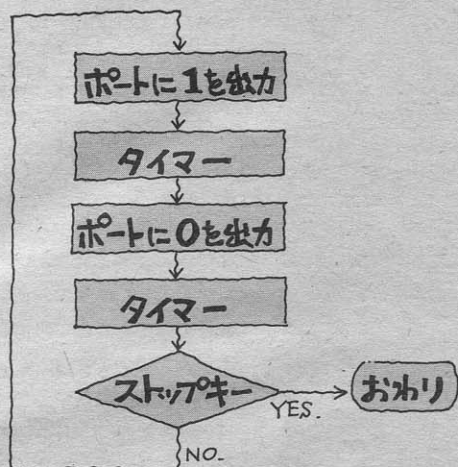 ポートに1を出力
タイマー
ポートに0を出力
タイマー
ストップキー
YES.
おわり
NO.